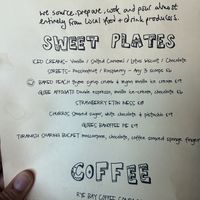 we source, prepare, work and pour almost
entirely from local food + drink producers.
SWEET PLATES
ICED CREAMS- Vanilla / Salted Caramel / Lotus Biscuit / Chocolate
SORBETS- Passionfruit / Raspberry - Any 3 scoops £6
BAKED PEACH thyme syrup crumb & mascarpone vanilla ice-cream £9
GUBE AFFOGATO Double espresso, vanilla ice-cream, chocolate £6
STRAWBERRY ETON MESS £8
CHURROS smoked sugar, white chocolate & pistachio £9
GUBES BANOFFEE PIE £9
TIRAMISU SHARING BUCKET mascarpone, chocolate, coffee soaked sponge fingers
COFFEE
RYE BAY COFFEE COMPANY